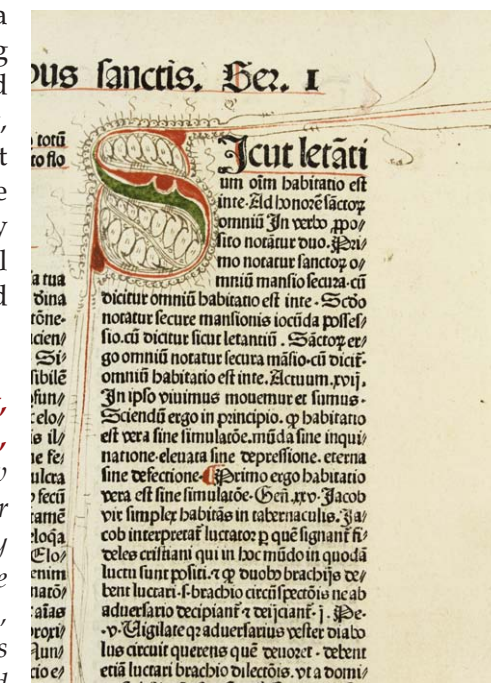 a
g
d
,
t
e
y
l
d
,
,
v
r
y
e
,
s
d
ous sanctis. Ser. I
totū
to flo
ta tua
dina
tōne⸗
cien/
Si⸗
sibilē
fun/
celo/
s il/
ne fe/
ulcra
o fecū
tamē
eloqa
Clo/
enim
natō/
aīas
proxi/
Nun/
cio e/
SIcut letāti
um oīm habitatio est
in te. Ad honorē sāctoꝝ
omniū In verbo ꝓpo/
sito notātur duo. Pri/
mo notatur sanctoꝝ o/
mniū mansio secura. cū
dicitur omniū habitatio est in te. Scdo
notatur secure mansionis iocūda posses/
sio. cū dicitur sicut letantiū. Sāctoꝝ er/
go omniū notatur secura māsio. cū dicit᷑.
omniū habitatio est in te. Actuum. xvij.
In ipso viuimus mouemur et sumus.
Sciendū ergo in principio. ꝙ habitatio
est vera sine simulatōe. mūda sine inqui/
natione. eleuata sine depressione. eterna
sine defectione. Primo ergo habitatio
vera est sine simulatōe. Geñ. xxv. Jacob
vir simplex habitās in tabernaculis. Ja/
cob interpretat᷑ luctator ꝑ quē signant᷑ fi/
deles cristiani qui in hoc mūdo in quodā
luctu sunt positi. ⁊ ꝙ duobꝰ brachijs de/
bent luctari. s. brachio circūspectōis ne ab
aduersario decipiant᷑ ⁊ deijciant᷑. j. Pe.
.v. Uigilate qꝛ aduersarius vester diabo
lus circuit querens quē deuoret. debent
etiā luctari brachio dilectōis. vt a domi/